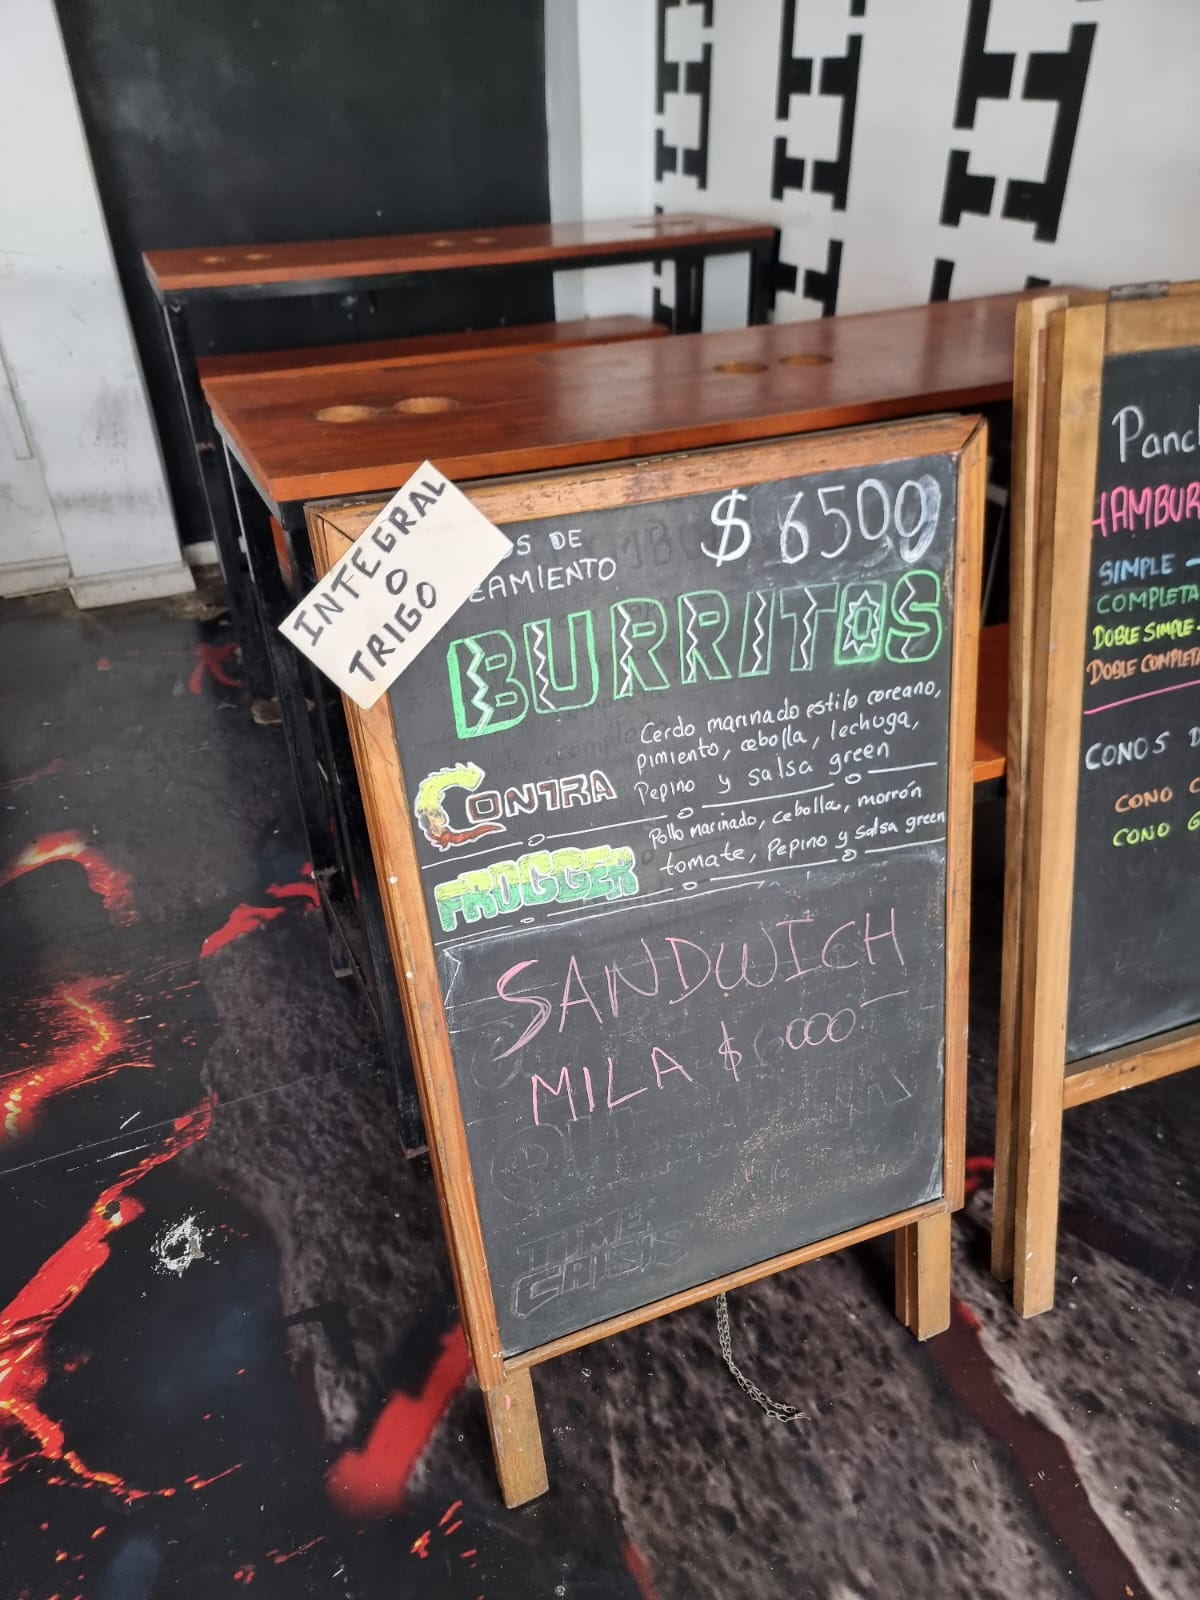 INTEGRAL
O
TRIGO
DE
$ 6500
BURRITOS
CONTRA
Cerdo marinado estilo coreano,
pimiento, cebolla, lechuga,
Pepino y salsa green
FROGGER
Pollo marinado, cebolla, morrón
tomate, Pepino y salsa green
SANDWICH
MILA $ 000
TIME
CRISIS
SIMPLE -
DOBLE SIMPLE -
CONOS
CONO
CONO